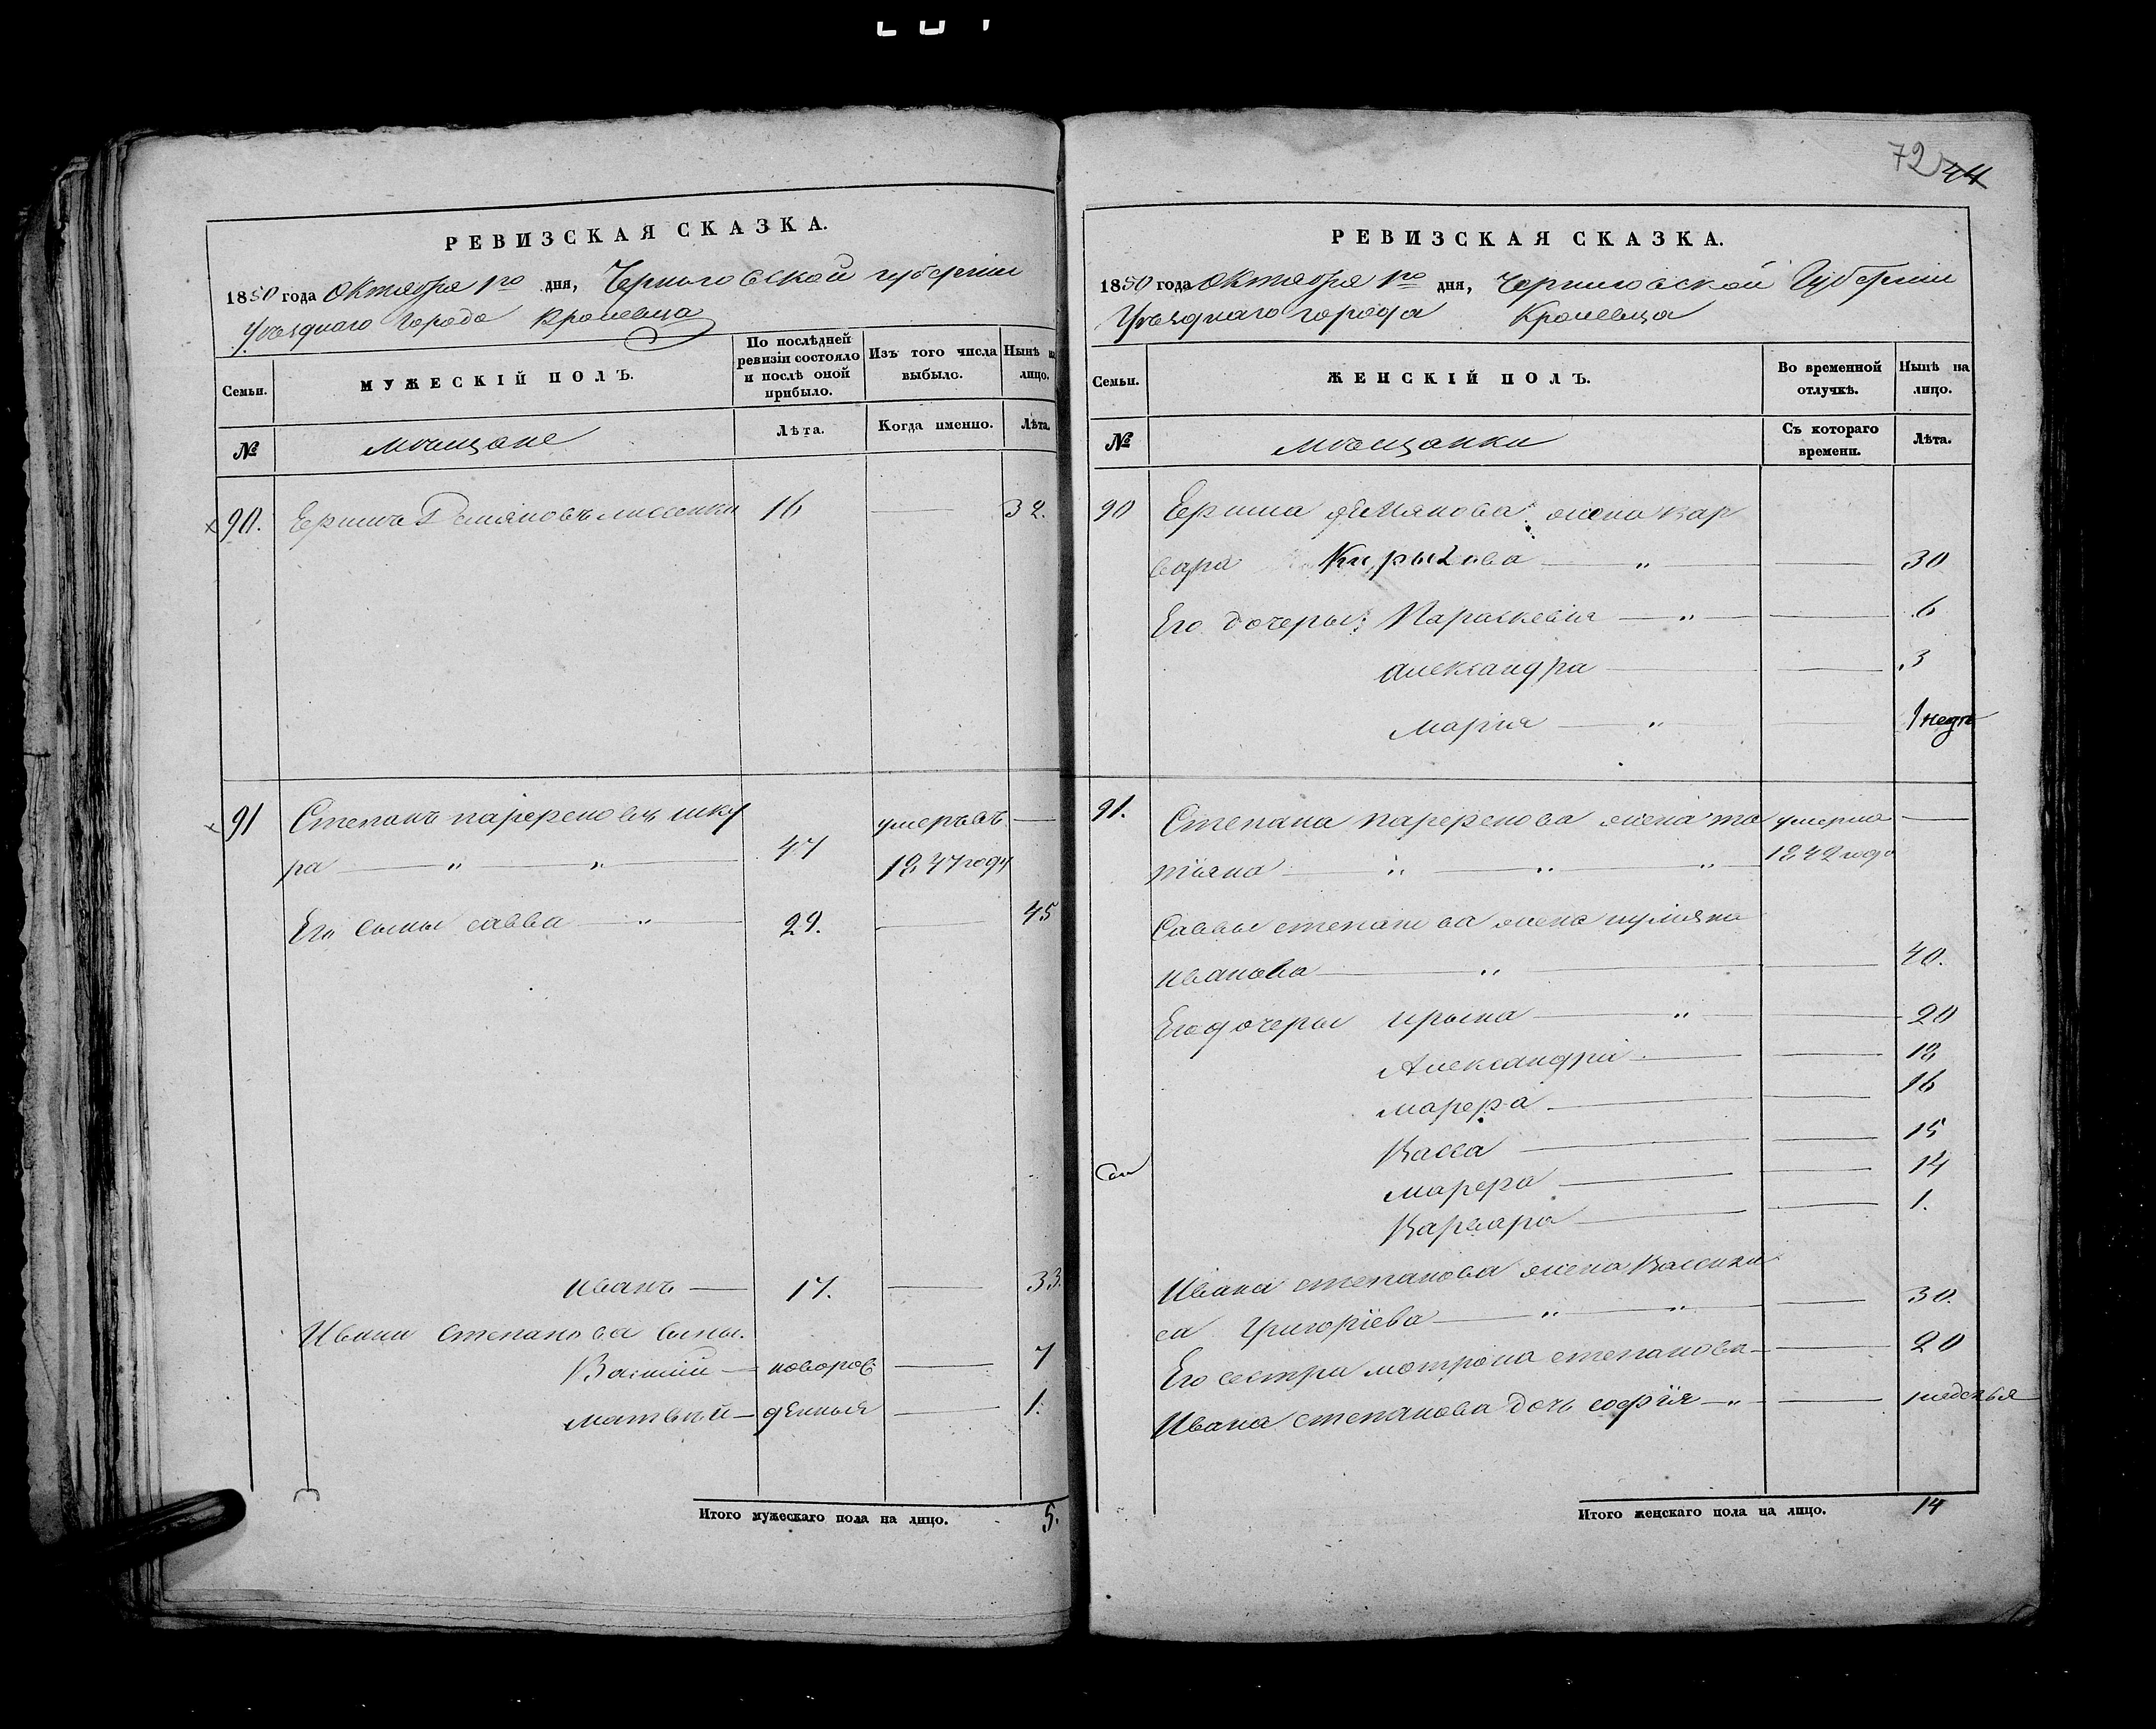 72 44
РЕВИЗСКАЯ СКАЗКА.
1850 года Октября 1го дня, Черниговской губернiи
Уѣзднаго Города Кролевца
Семьи.
МУЖЕСКІЙ ПОЛЪ.
По послѣдней ревизіи состояло и послѣ оной прибыло.
Изъ того числа выбыло.
Нынѣ на лицо.
№
мѣщане
Лѣта.
Когда именно.
Лѣта.
90. Демяновъ 16 — 32.
91 Степанъ парфеновъ шку умеръ въ —
ра — " — " — 47 1847 году
Его сыны савва — " — 29. — 45
иванъ — 17. — 33.
Ивана степанова сыны.
Василий — новорож — 7
матвѣй — денныя — 1.
Итого мужескаго пола на лицо. 5.
РЕВИЗСКАЯ СКАЗКА.
1850 года Октября 1го дня, Черниговской Губернiи
Уѣзднаго города Кролевца
Семьи.
ЖЕНСКІЙ ПОЛЪ.
Во временной отлучкѣ.
Нынѣ на лицо.
№
мѣщанки
Съ котораго времени.
Лѣта.
90 демянова жена вар
вара — " — — 30
Его дочеры: Параскевiя — " — — 6
александра — — 3
марiя — " — — 1 недѣ
91. Степана парфенова жена та умерла —
тiяна — " — " — " 1842 года
Саввы степанова жена
иванова — " — — 40.
Его дочеры ирына — " — — 20
Александра — — 18
марфа — — 16
Васса — — 15
марфа — — 14
Варвара — — 1.
Ивана степанова жена Васили
са Григорiева — " — " — 30.
Его сестра мотрона степанова — — 20
Ивана степанова дочь софiя — " — —
Итого женскаго пола на лицо. 14